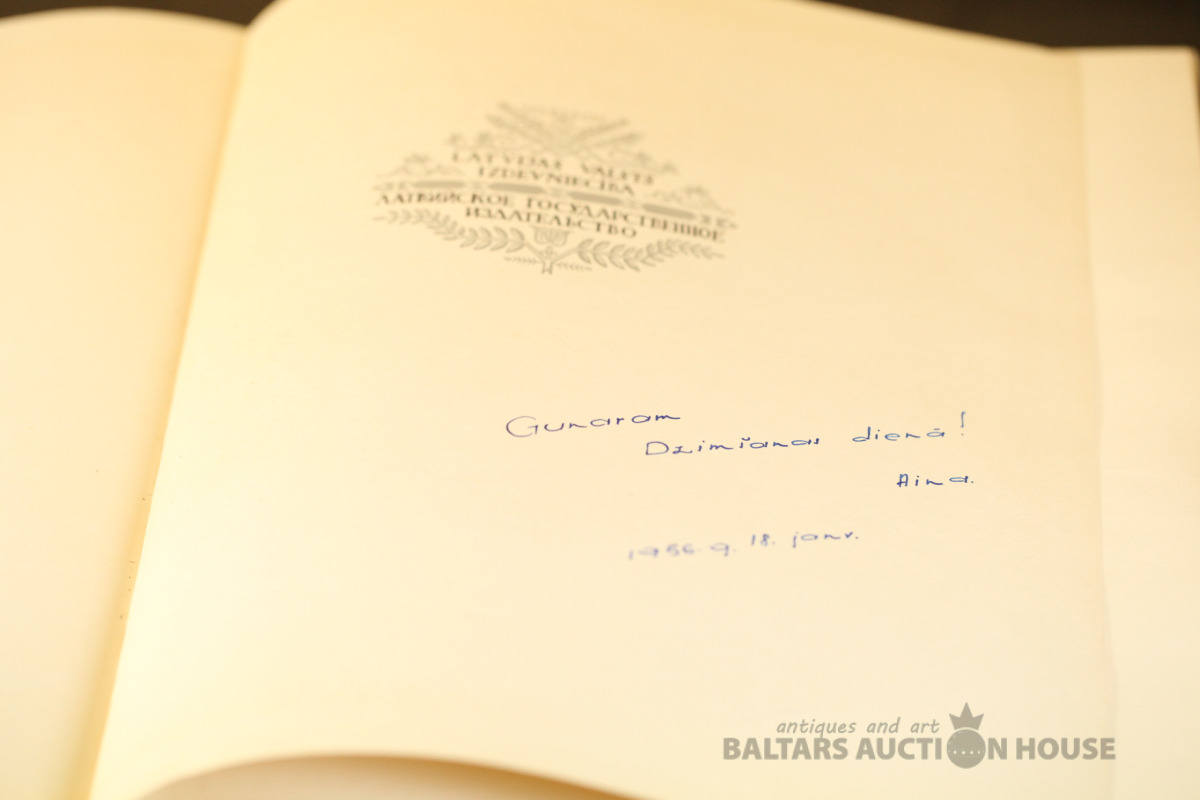 LATVIJAS VALSTS
IZDEVNIECĪBA
ЛАТВИЙСКОЕ ГОСУДАРСТВЕННОЕ
ИЗДАТЕЛЬСТВО
Gunaram
Dzimšanas dienā!
Aina.
1956. g. 18. janv.
antiques and art
BALTARS AUCTION HOUSE